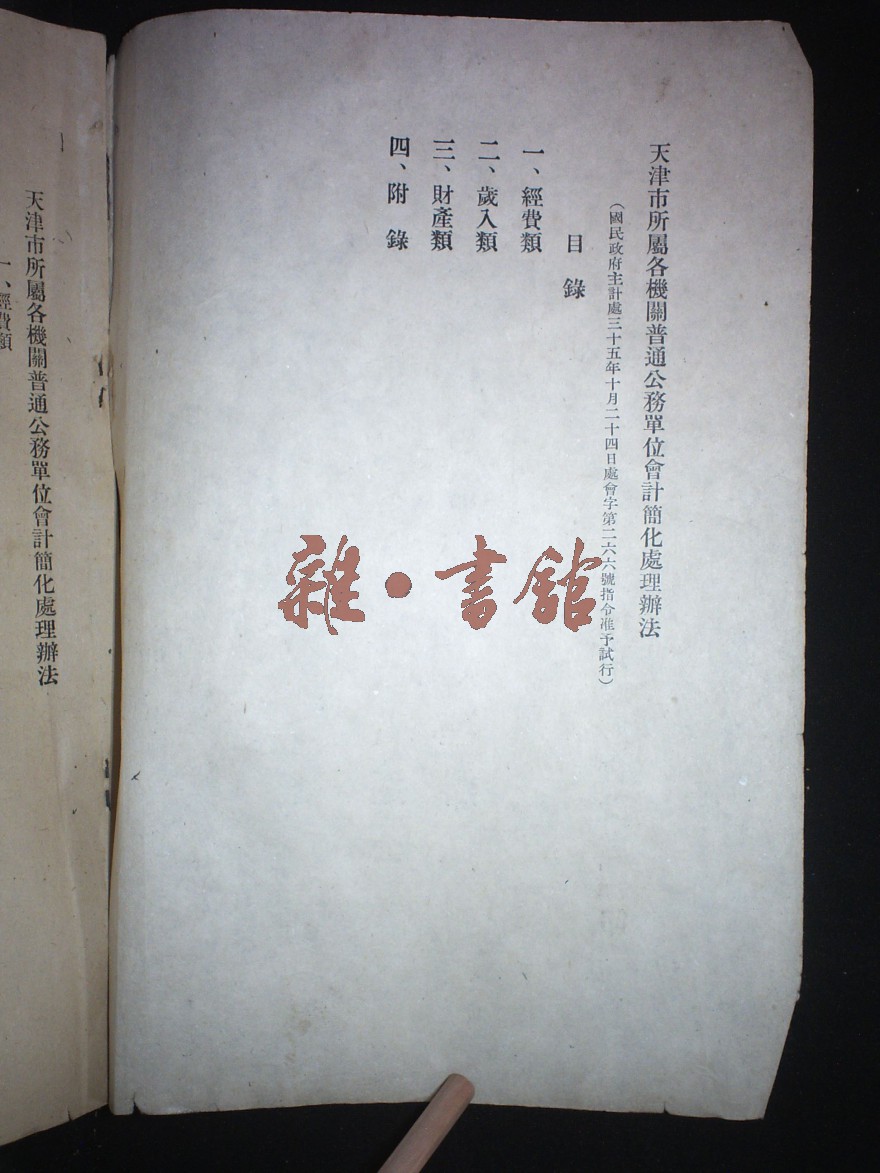 天津市所屬各機關普通公務單位會計簡化處理辦法
（國民政府主計處三十五年十月二十四日處會字第二六六號指令准予試行）
目錄
一、經費類
二、歲入類
三、財產類
四、附錄
天津市所屬各機關普通公務單位會計簡化處理辦法
一、經費類
雜•書館